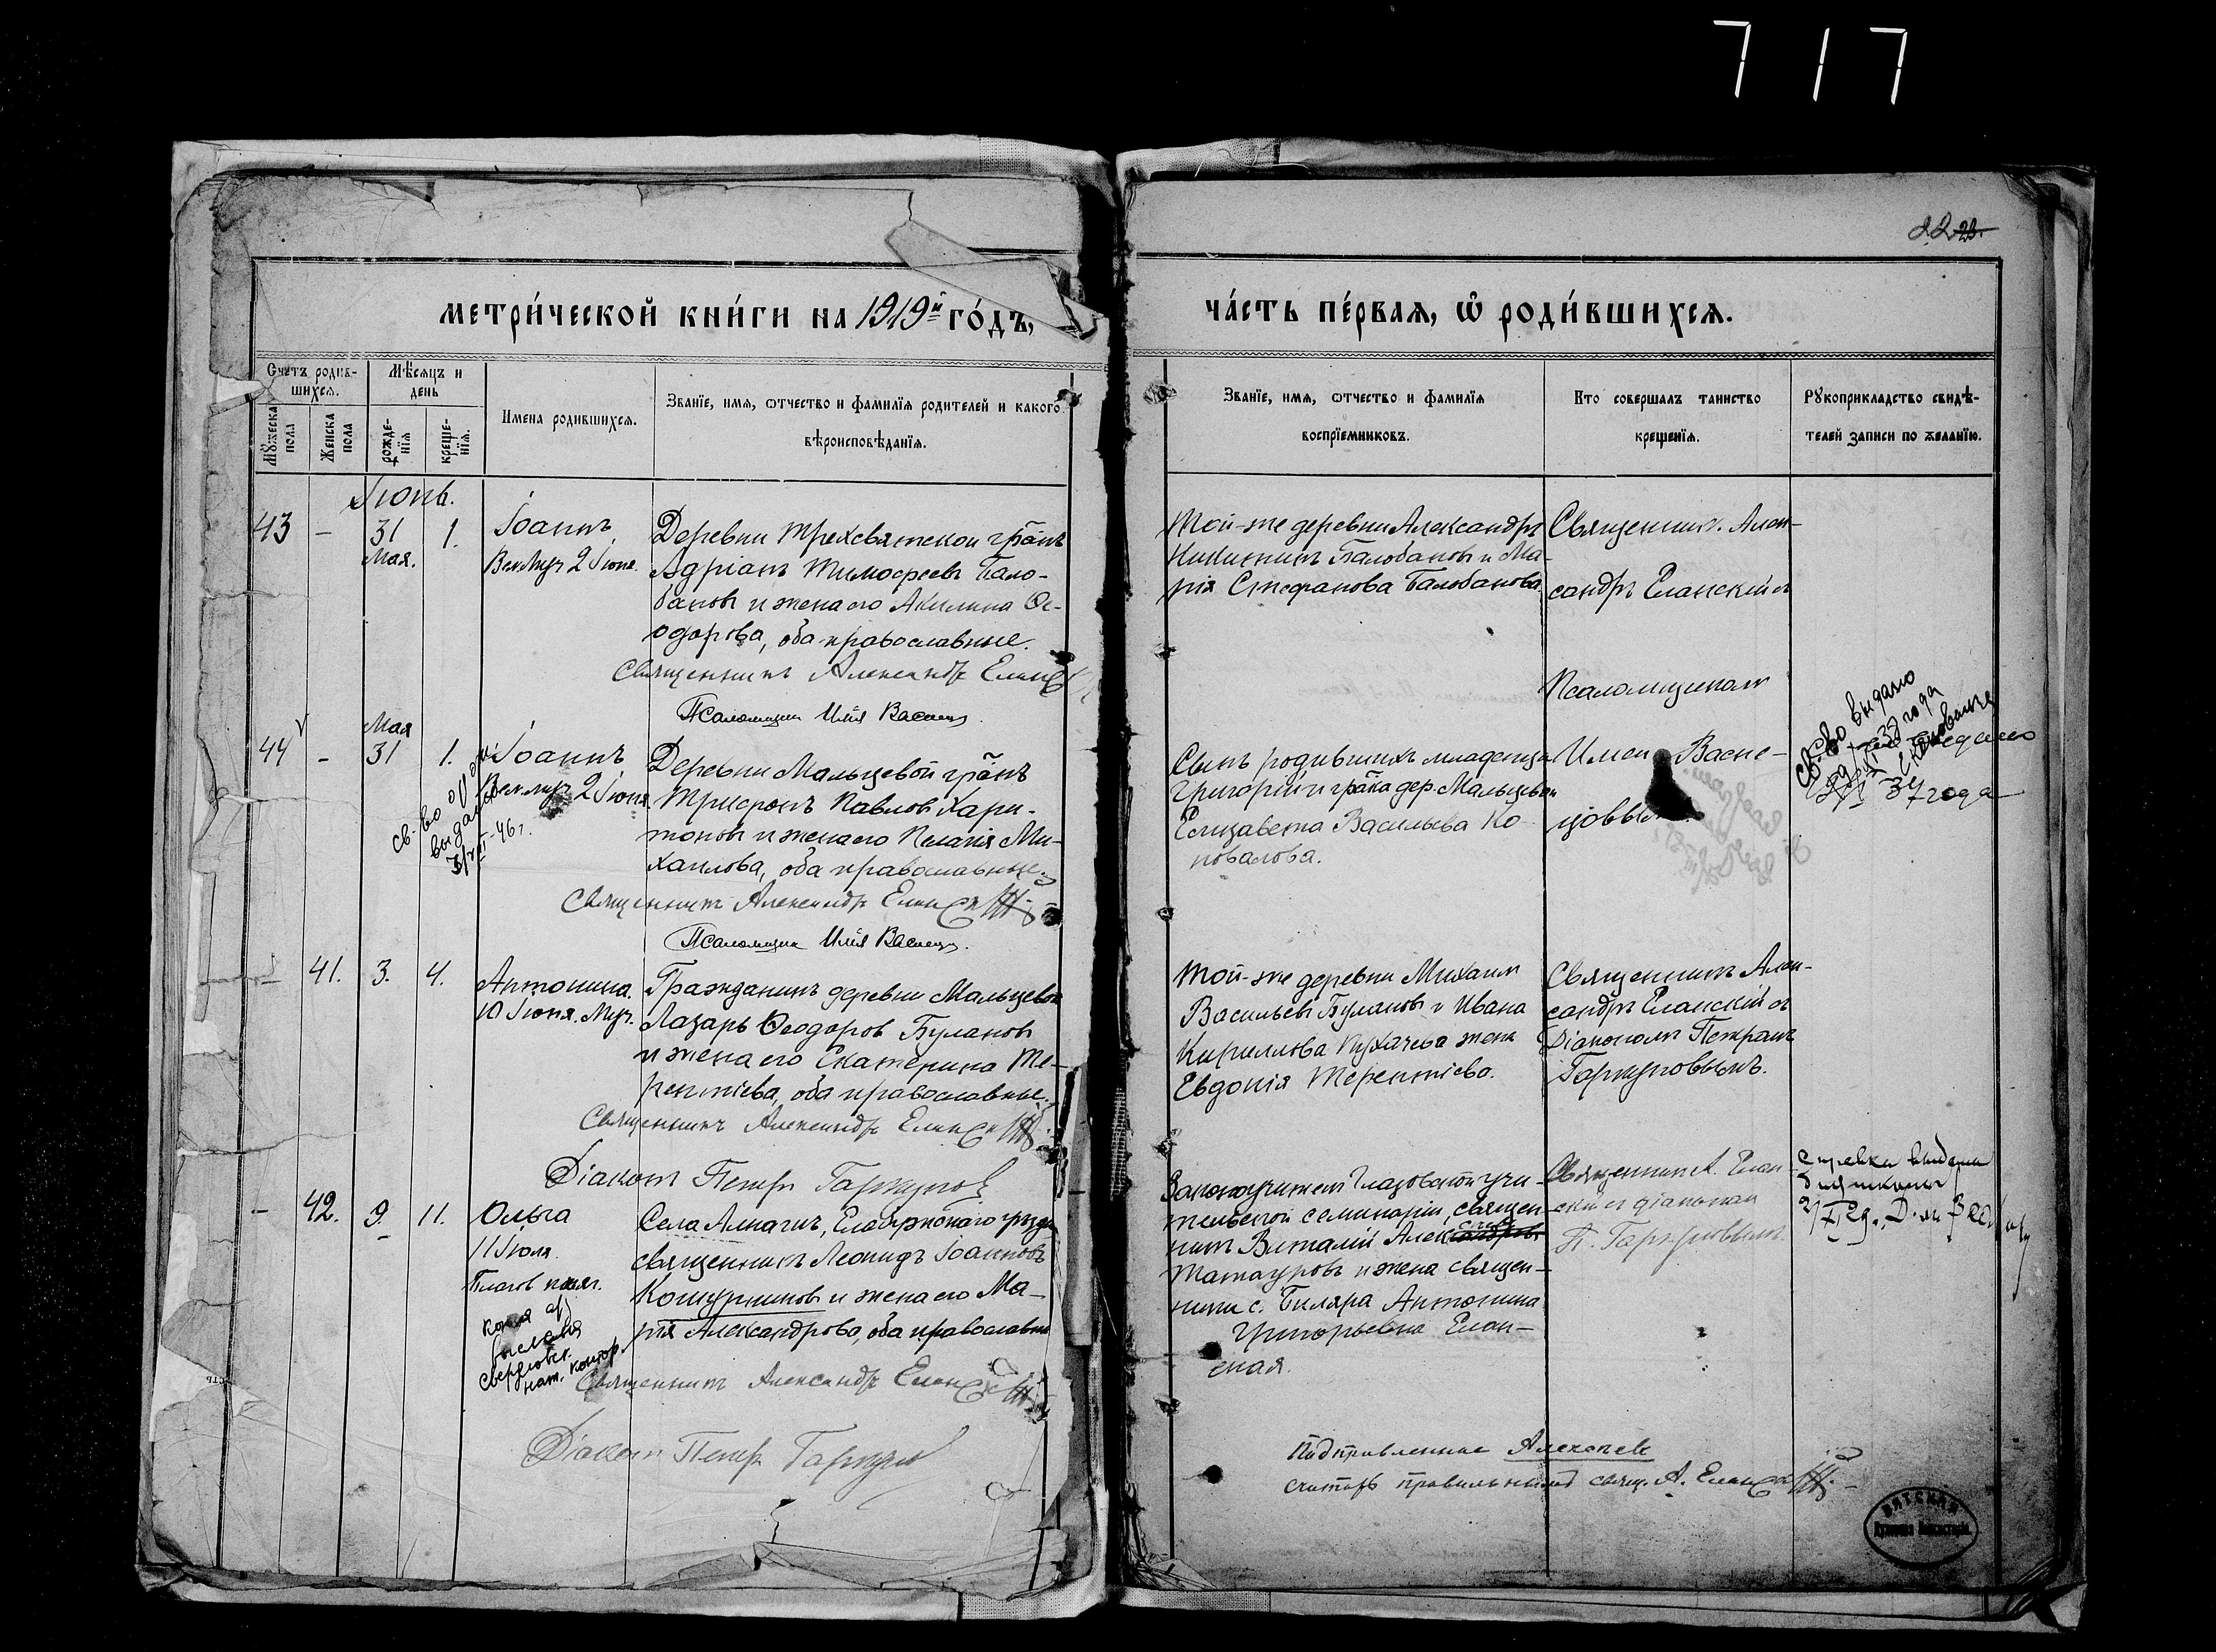 717
22 23.
метри́ческой кни́ги на 1919й го́дъ,
ча́сть пе́рвая, ѿ роди́вшихся.
Счетъ родив-
шихся.
Мѣсяцъ и
день
Мꙋжеска
пола
Женска
пола
рожде-
нїя
креще-
нїя.
Имена родившихся.
Званїе, имя, ѿтчество и фамилїя родителей и какого
вѣроисповѣданїя.
Званїе, имя, ѿтчество и фамилїя
воспрїемниковъ.
Кто совершалъ таинство
крещенїя.
Рꙋкоприкладство свидѣ-
телей записи по желанїю.
Іюнь.
43 – 31 1. Іоаннъ
Мая. 2 Іюня.
Деревни Трехсвятской гр-нъ
Адріанъ Тимофеевъ Бало-
бановъ и жена его Акилина Ѳе-
одорова, оба православные.
Священникъ Александръ Еланск
Псаломщик Илія Васнец
Той-же деревни Александръ
Никитинъ Балобановъ и Ма-
рія Стефанова Балобанова.
Священник. Алек-
сандръ Еланскій съ
Псаломщикомъ
Иліей Васне-
цовым
Мая
44 – 31 1. Іоаннъ
2 Іюня
св-во
выдано
46 г.
Деревни Мальцевой гр-нъ
Трифонъ Павловъ Хари-
тоновъ и жена его Пелагія Ми-
хаилова, оба православные.
Священникъ Александръ Еланск
Псаломщик Илія Васнец
Сынъ родившихъ младенца
Григорій и гр-ка дер. Мальцевой
Елизавета Васильева Ко-
новалова.
Св-во выдано
37 года
– 41. 3. 4. Антонина.
10 Іюня. Муч.
Гражданинъ деревни Мальцевой
Лазарь Ѳеодоров Булановъ
и жена его Екатерина Те-
рентіева, оба православные.
Священникъ Александръ Еланск
Діаконъ Петръ Гаркунов
Той-же деревни Михаил
Васильевъ Булановъ и Ивана
Кириллова Пухачева жена
Евдокія Терентіева.
Священникъ Алек-
сандръ Еланскій съ
Діакономъ Петромъ
Гаркуновымъ.
– 42. 9. 11. Ольга
11 Іюля.
копия
выслана
свердловск.
нот. контор.
Села Алнашъ, Елабужскаго уѣзда
священникъ Леонидъ Іоанновъ
Кошурниковъ и жена его Ма-
рія Александрова, оба православные
Священникъ Александръ Еланск
Діакон Петръ Гаркунов
Законоучитель Глазовской учи-
тельской семинаріи, священ-
никъ Виталій Алексеев
Татауровъ и жена священ-
ника с. Биляра Антонина
Григорьевна Елан-
ская.
Священник А. Елан-
скій съ діаконом
П. Гаркуновым.
Справка выдана
Подправленное Алексеев
считать правильным свящ. А. Еланск
ВЯТСКАЯ
Духовная Консисторія